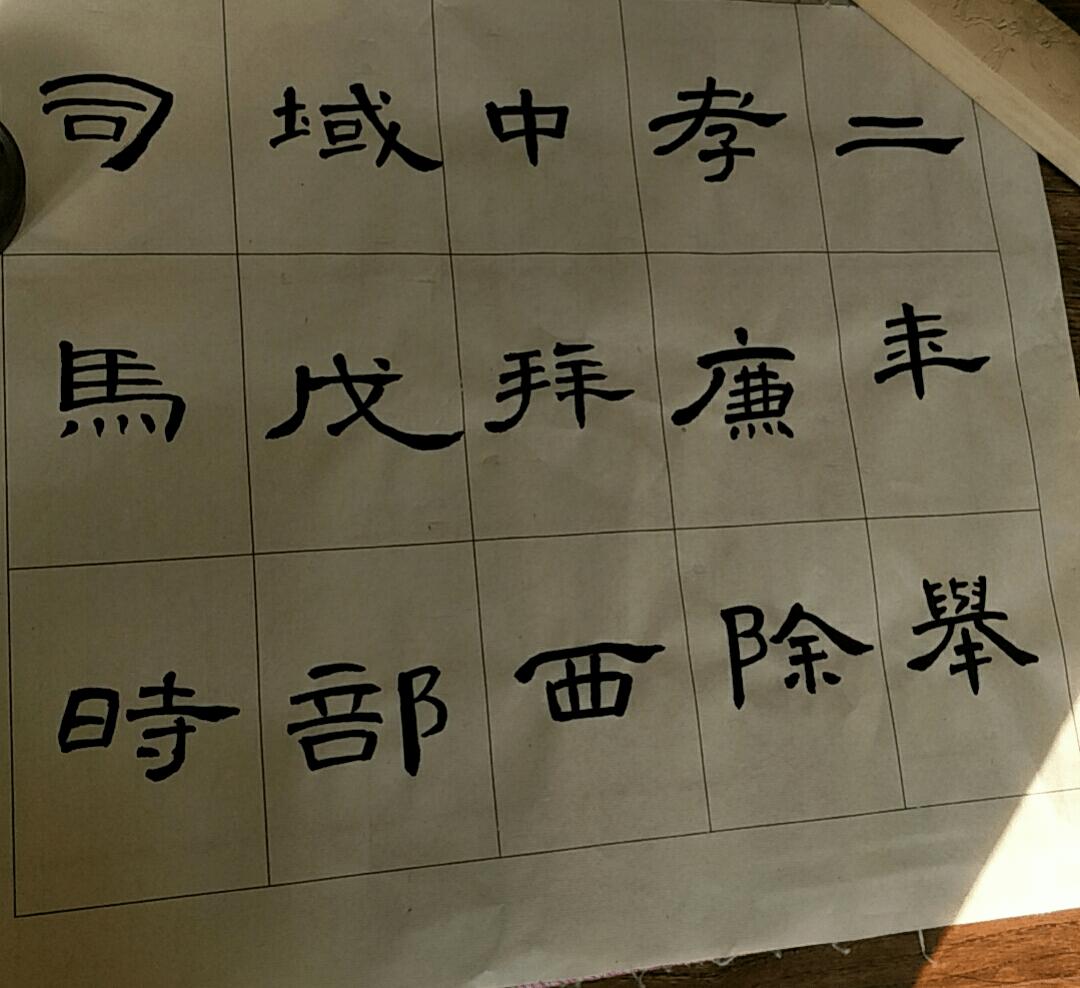 二年舉
孝廉除
中拜西
域戊部
司馬時